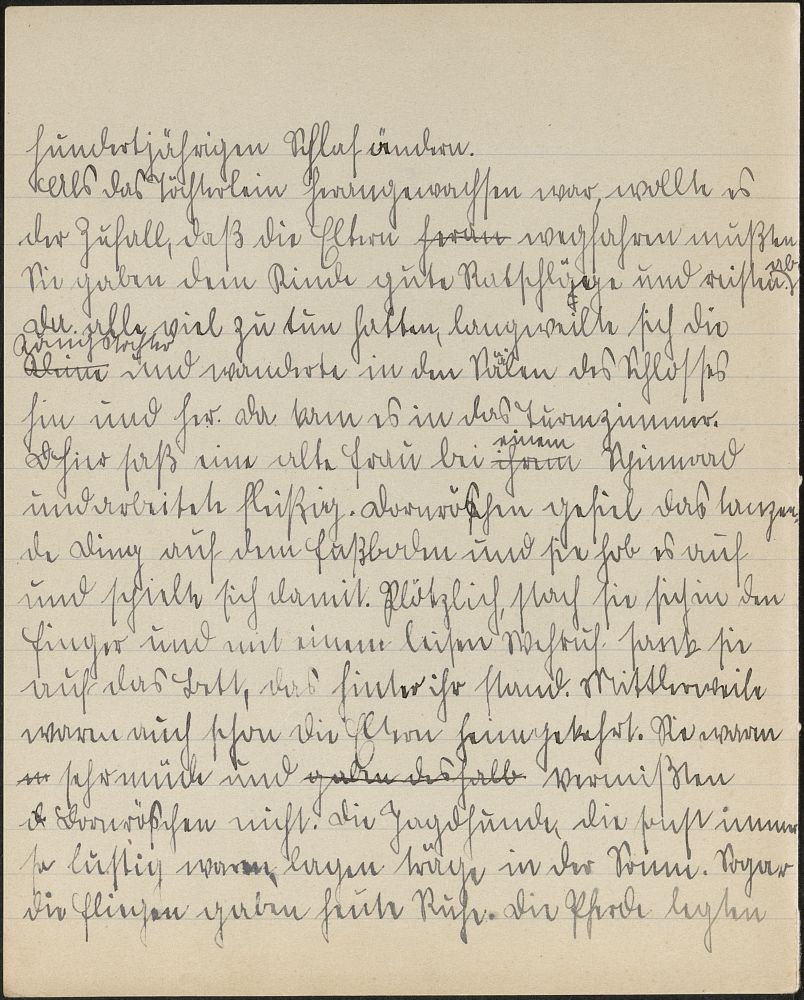 hundertjährigen Schlaf ändern.
Als das Töchterlein herangewachsen war, wollte es
der Zufall, daß die Eltern heran wegfahren mußten.
Sie gaben dem Kinde gute Ratschläge und reisten ab.
Da alle viel zu tun hatten, langweilte sich die
Königstochter
Kleine und wanderte in den Sälen des Schlosses
hin und her. Da kam es in das Turmzimmer.
Hier saß eine alte Frau bei ihrem einem Spinnrad
und arbeitete fleißig. Dornröschen gefiel das tanzen-
de Ding auf dem Fußboden und sie hob es auf
und spielte sich damit. Plötzlich, stach sie sich in den
Finger und mit einem leisen Wehruf sank sie
auf das Bett, das hinter ihr stand. Mittlerweile
waren auch schon die Eltern heimgekehrt. Sie waren
sehr müde und gaben deshalb vermißten
Dornröschen nicht. Die Jagdhunde, die sonst immer
so lustig waren, lagen träge in der Sonne. Sogar
die Fliegen gaben heute Ruhe. Die Pferde legten